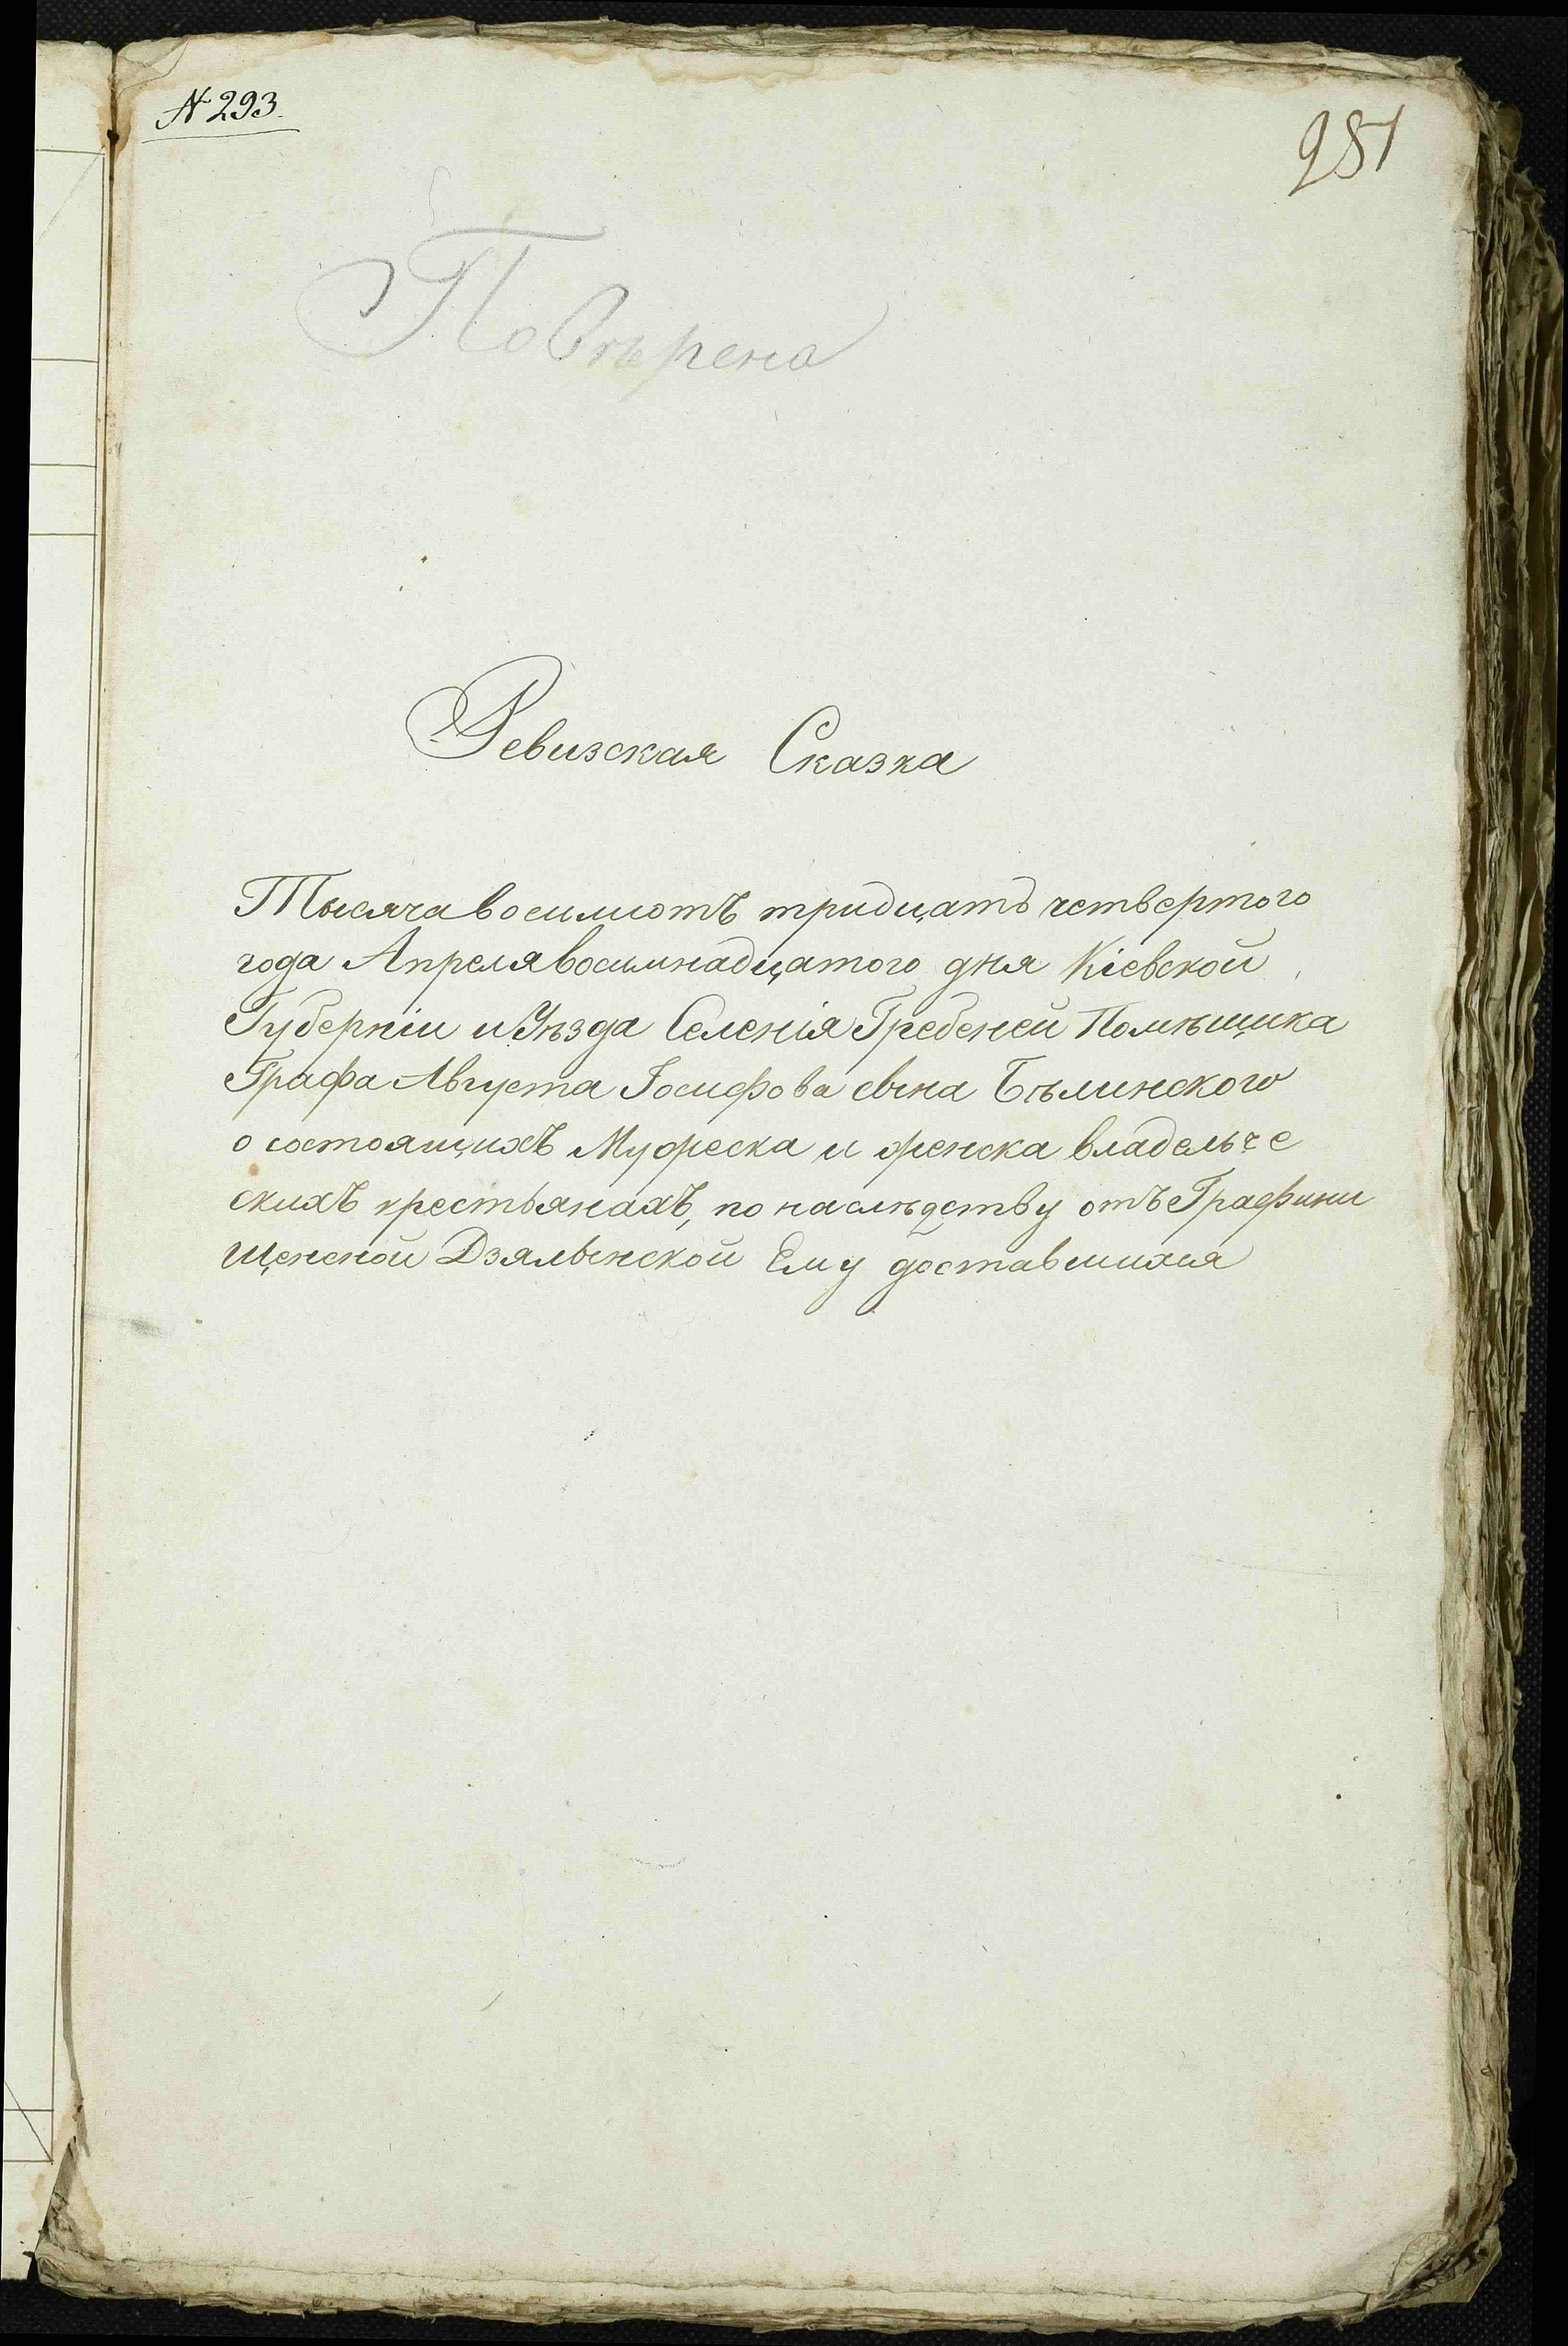 № 293.
281
Повѣрена
Ревизская Сказка
Тысяча восимсотъ тридцать четвертого
года Апреля восимнадцатого дня Кіевской
Губерніи и Уѣзда Селенія Гребеней Помѣщика
Графа Августа Іосифова сына Бѣлинского
о состоящихъ Мужеска и женска владельче
скихъ крестьянахъ, по наслѣдству отъ Графини
Щенсной Дзялынской Ему доставшихся